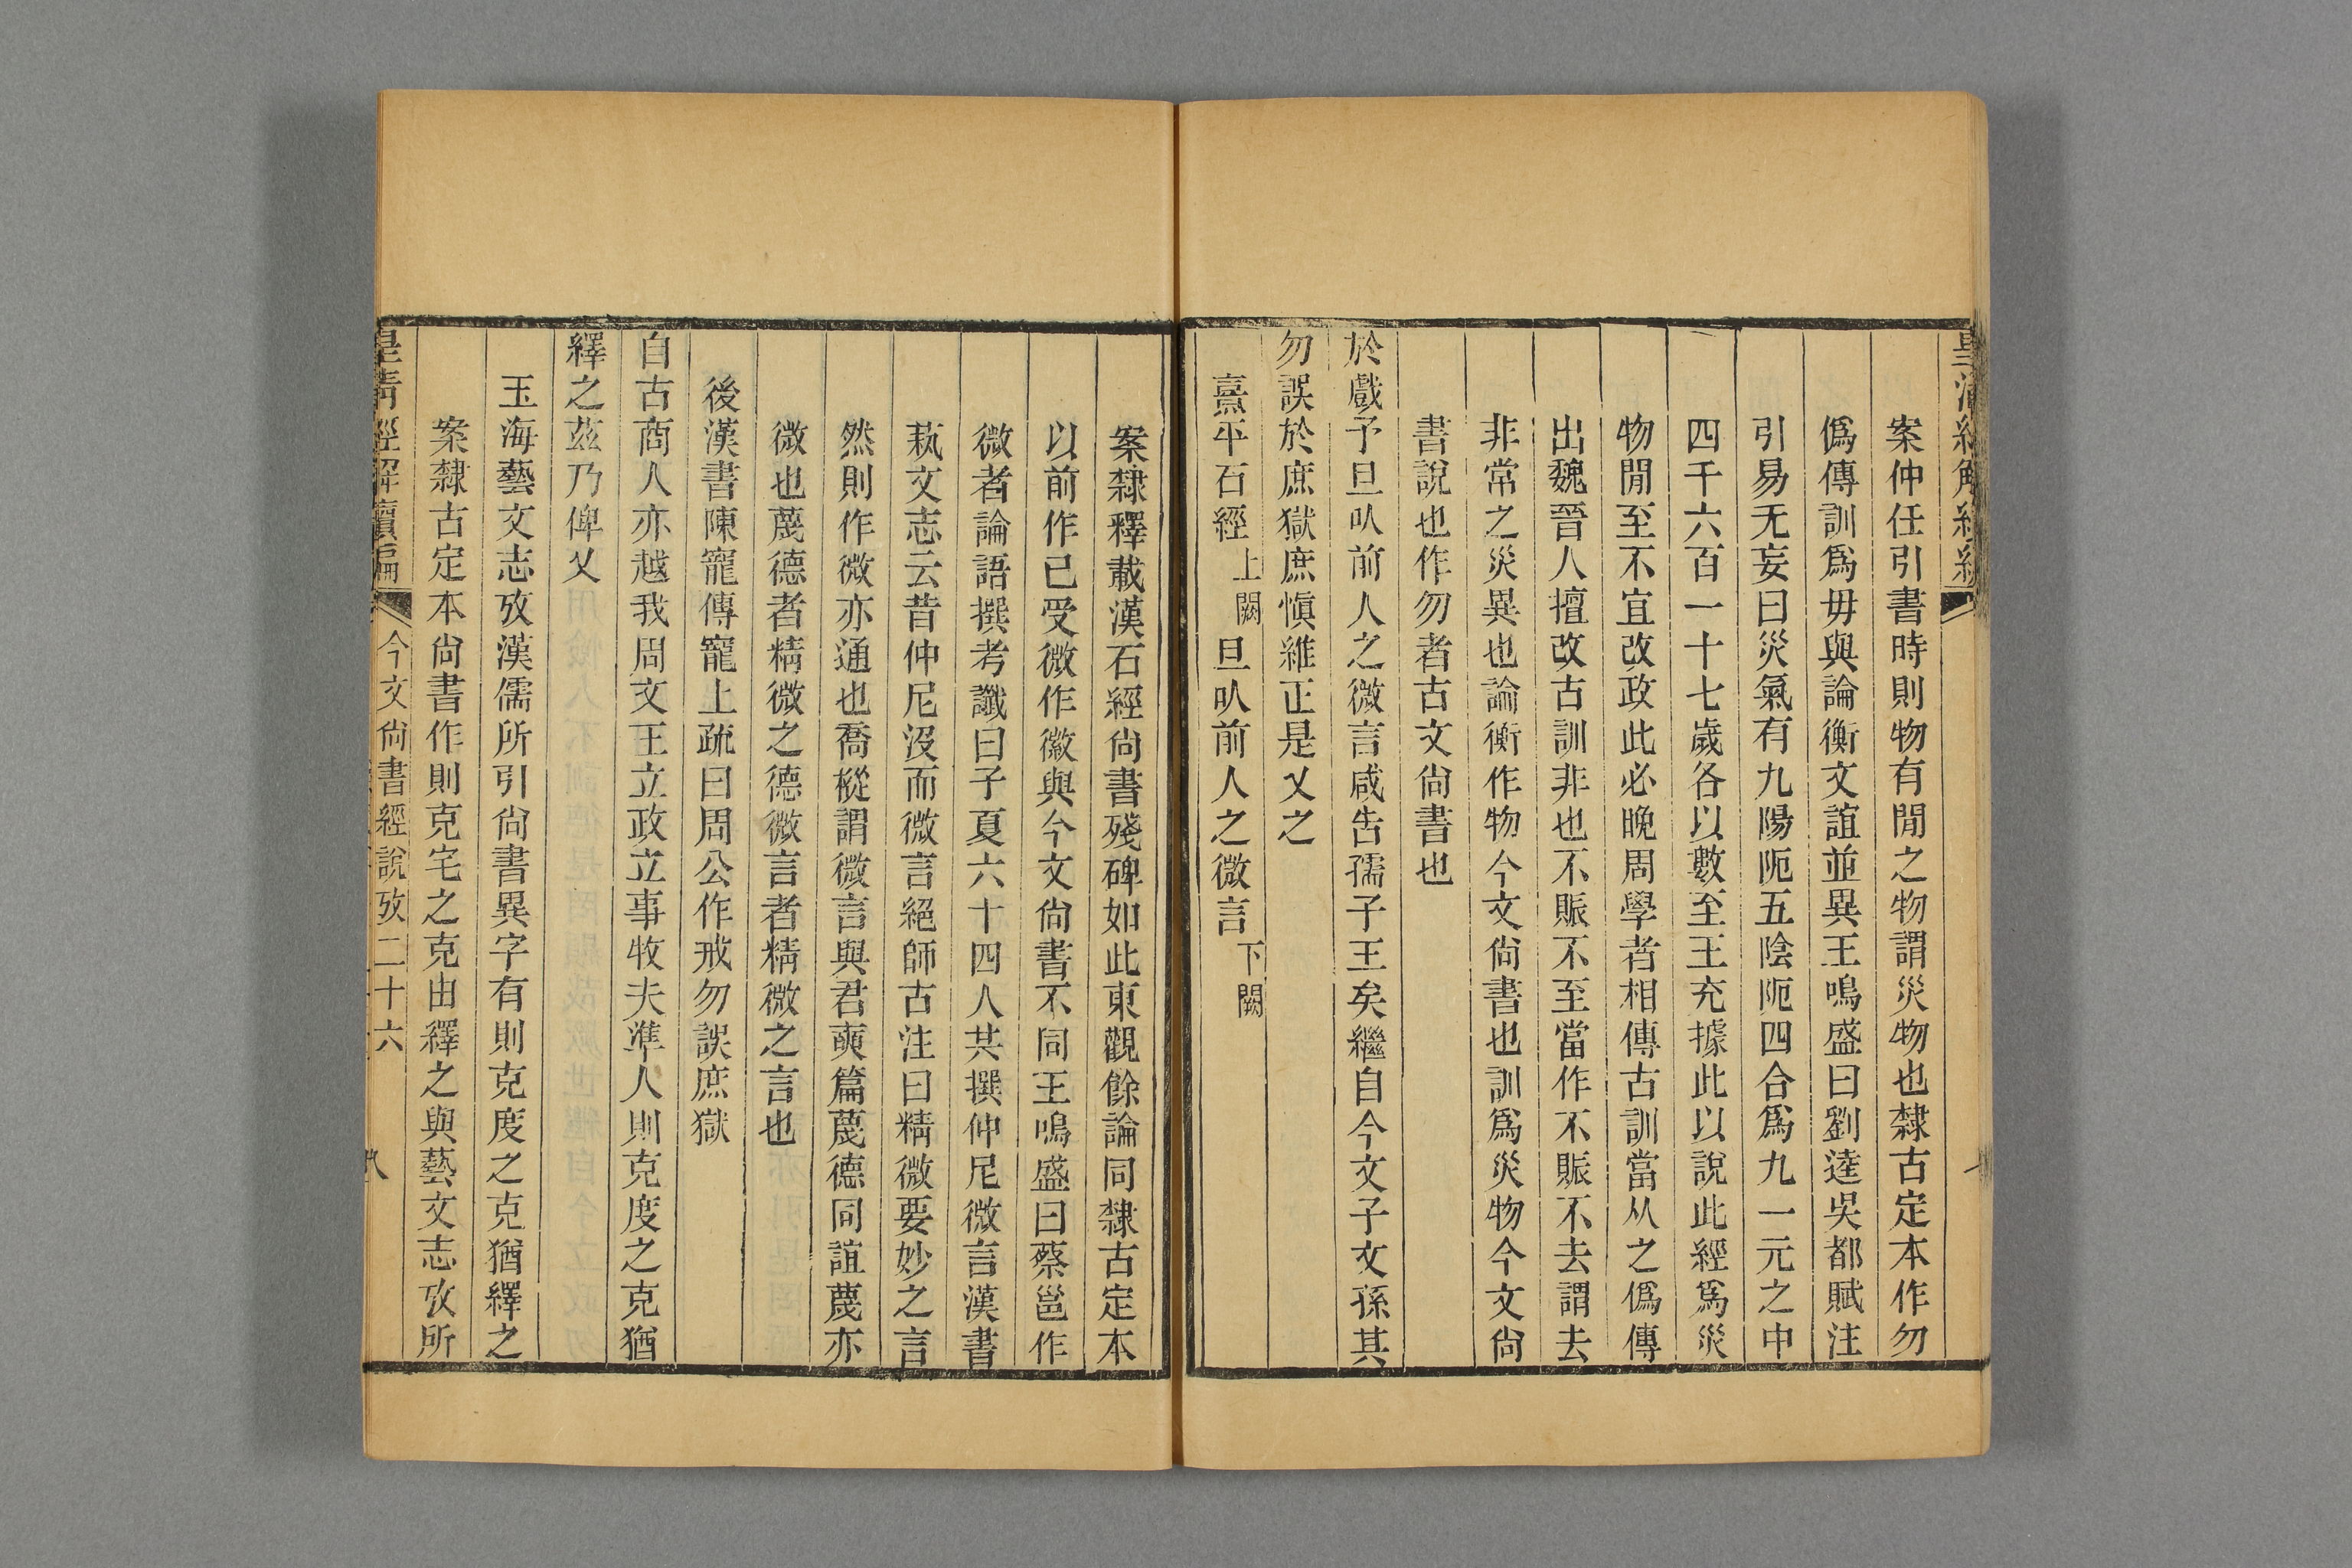 案仲任引書時則物有閒之物謂災物也隸古定本作勿
僞傳訓爲毋與論衡文誼並異王鳴盛曰劉逵吳都賦注
引易无妄曰災氣有九陽阨五陰阨四合爲九一元之中
四千六百一十七歲各以數至王充據此以說此經爲災
物閒至不宜改政此必晚周學者相傳古訓當从之僞傳
出魏晉人擅改古訓非也不賑不至當作不賑不去謂去
非常之災異也論衡作物今文尙書也訓爲災物今文尙
書說也作勿者古文尙書也
於戲予旦㕥前人之微言咸告孺子王矣繼自今文子文孫其
勿誤於庶獄庶愼維正是乂之
熹平石經上闕旦㕥前人之微言下闕
案隸釋載漢石經尙書殘碑如此東觀餘論同隸古定本
以前作已受微作徽與今文尙書不同王鳴盛曰蔡邕作
微者論語撰考讖曰子夏六十四人共撰仲尼微言漢書
蓺文志云昔仲尼沒而微言絕師古注曰精微要妙之言
然則作微亦通也喬樅謂微言與君奭篇蔑德同誼蔑亦
微也蔑德者精微之德微言者精微之言也
後漢書陳寵傳寵上疏曰周公作戒勿誤庶獄
自古商人亦越我周文王立政立事牧夫準人則克度之克猶
繹之茲乃俾乂
玉海藝文志攷漢儒所引尙書異字有則克度之克猶繹之
案隸古定本尙書作則克宅之克由繹之與藝文志攷所
皇清經解續編 今文尙書經說攷二十六 八